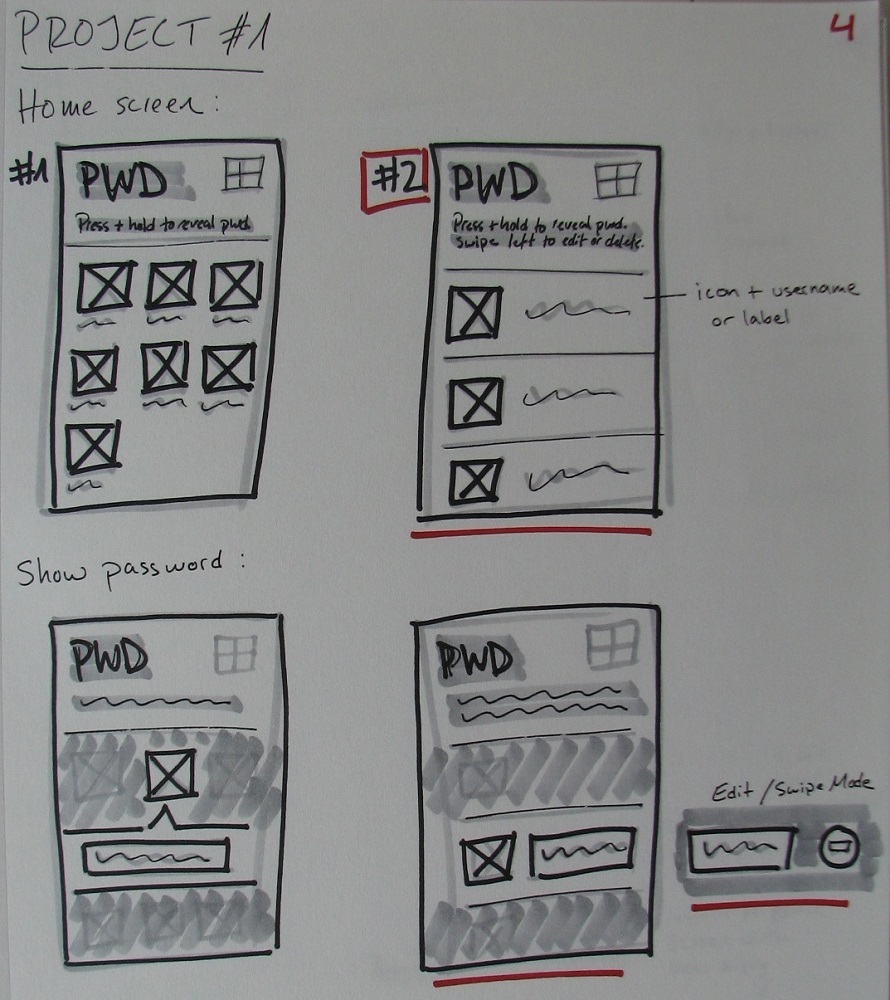 PROJECT #1
4
Home screen:
#1
PWD
Press + hold to reveal pwd
#2
PWD
Press + hold to reveal pwd.
swipe left to edit or delete.
icon + username
or label
Show password:
PWD
PWD
Edit / Swipe Mode